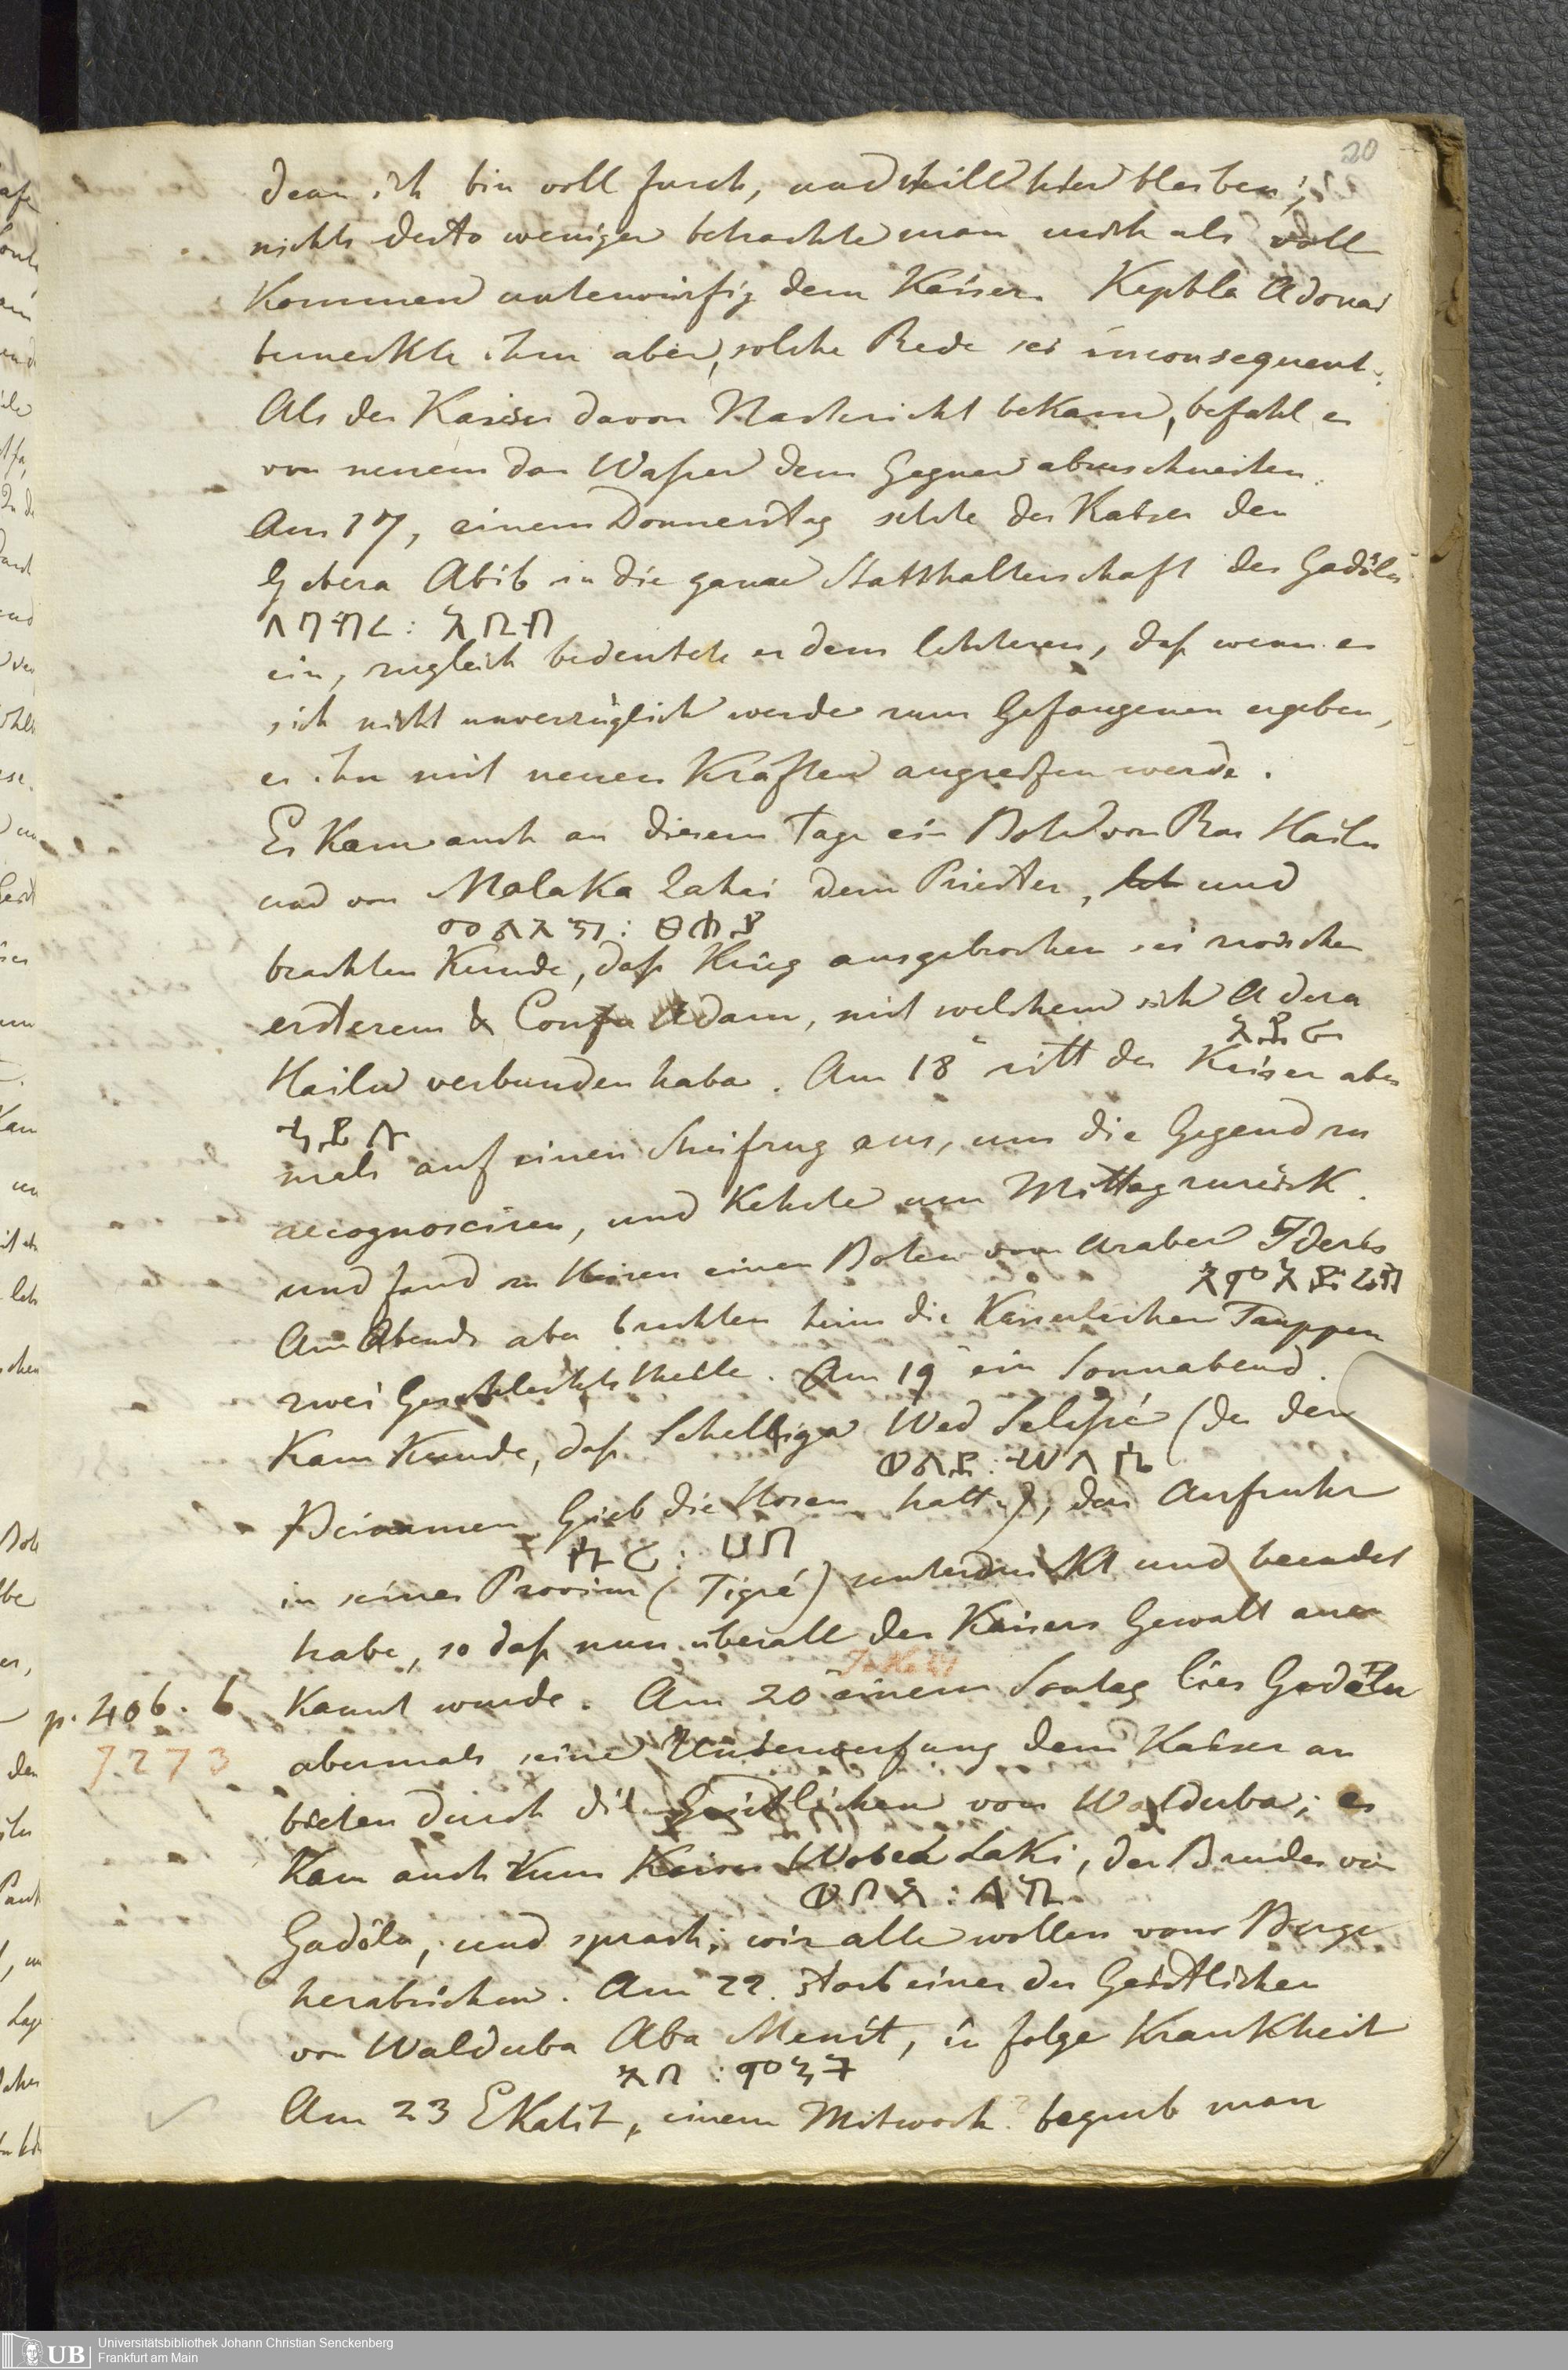 20
denn ich bin voll furch, und will hier bleiben;
nichts desto weniger betrachte man mich als voll
kommen unterwürfig dem Kaiser. Keptla Adonai
bemerkte ihm aber, solche Rede sei inconsequent.
Als der Kaiser davon Nachricht bekam, befahl er
von neuem das Waßer dem Gegner abzuschneiden.
Am 17, einem Donnerstag setzte der Kaiser den
Gebera Abib in die ganze Statthalterschaft des Gadölu
ein, zugleich bedeutete er dem letzteren, daß wenn er
sich nicht unverzüglich werde zum Gefangenen ergeben,
er ihn mit neuen Kräften angreifen werde.
Es kam auch an diesem Tage ein Bote von Ras Hailu
und von Malaka Zahai dem Priester, und
መልአከ : ፀሐይ
brachten Kunde, daß Krieg ausgebrochen sei zwischen
ersterem & Confu Adam, mit welchem sich Adera
አደራ
Hailu verbunden habe. Am 18 ritt der Kaiser aber
ኃይሉ
mals auf einen Streifzug aus, um die Gegend zu
recognosciren, und kehrte um Mittag zurück.
und fand zu einen Boten vom Araber Ideris
Am Abends aber brachten heim die Kaiserlichen Truppen
zwei Geschlechtstheile. Am 19 ein Sonnabend.
kam Kunde, daß Schelliga Wed Selaßé (der den
ወልደ : ሥላሴ
Beinamen Gieb die Hosen hatte), den Aufruhr
ሱሪ : ሀብ
in seiner Provinz (Tigré) unterdrückt und beendet
habe, so daß nun überall des Kaisers Gewalt aner
p. 406. b kannt wurde. Am 20 einem Sontag lies Gadölu
7273 abermals seine Unterwerfung dem Kaiser an
bieten durch die Geistlichen von Walduba; es
kam auch zum Kaiser Wobea Laki, der Bruder von
Gadölu, und sprach; wir alle wollen vom Berge
herabziehen. Am 22. starb einer der Geistlichen
von Walduba Aba Menit, in folge Krankheit
Am 23 Ekatit, einem Mitwoch begrub man
Universitätsbibliothek Johann Christian Senckenberg
UB Frankfurt am Main